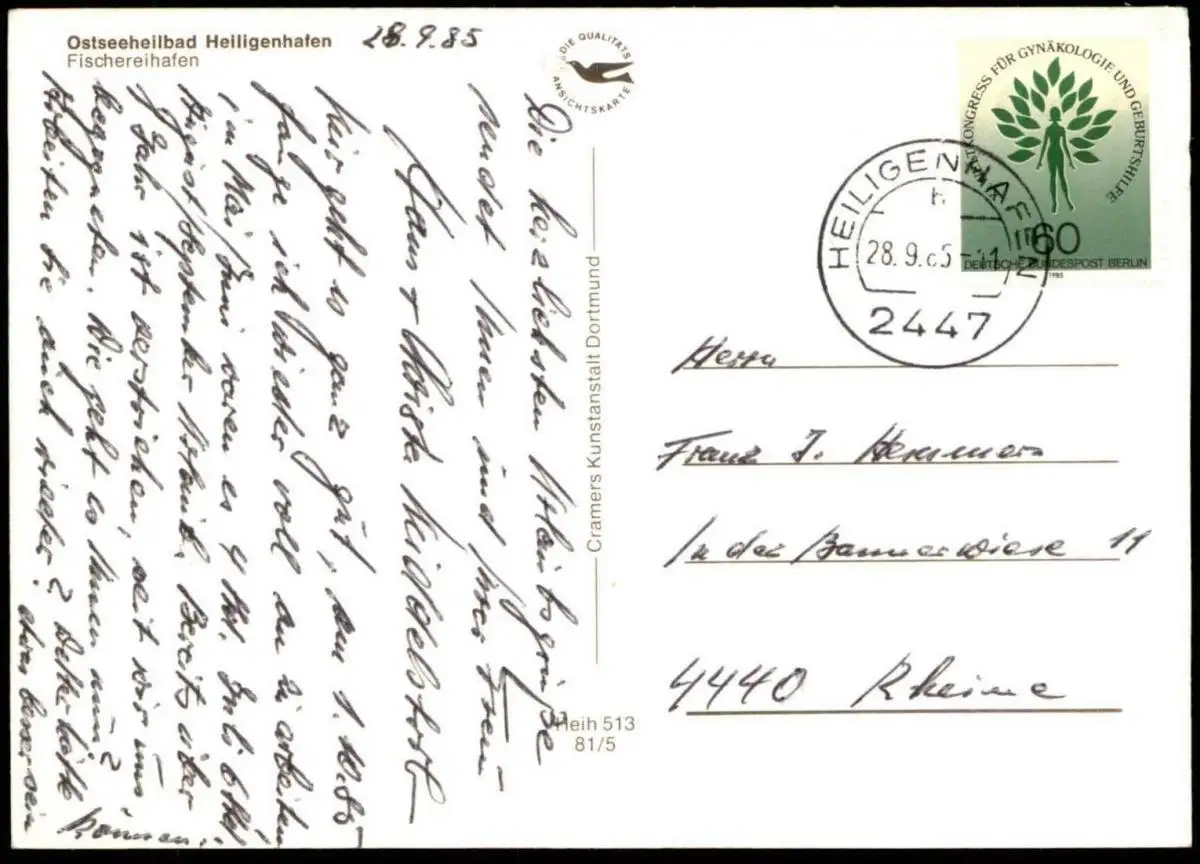 Ostseeheilbad Heiligenhafen
Fischereihafen
28.9.85
DIE QUALITÄTS
ANSICHTSKARTE
Die herzlichsten Urlaubsgrüße
sendet Ihnen und Ihrer Frau
Hans + Christa
Mir geht es ganz gut, am 1.10.85
fange ich wieder voll an zu arbeiten
im Mai/Juni waren es 4 Std. Juli 6 Std.
August/September Urlaub. Bereits über
1 Jahr ist verstrichen, seit wir uns
begegneten. Wie geht es Ihnen nun?
Arbeiten Sie auch wieder?
etwas besser sein
können.
Cramers Kunstanstalt Dortmund
Heih 513
81/5
WELTKONGRESS FÜR GYNÄKOLOGIE UND GEBURTSHILFE
60
DEUTSCHE BUNDESPOST BERLIN
1985
HEILIGENHAFEN
h
28.9.85-11
2447
Herrn
Franz J. Hemmers
In der Bannerwiese 11
4440 Rheine